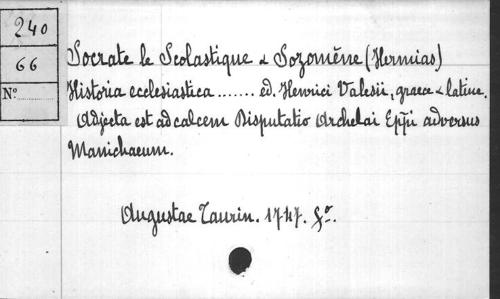 240
66
N° ........
Socrate le Scolastique & Sozomène (Hermias)
Historia ecclesiastica ....... ed. Henrici Valesii, graece & latine.
Adjecta est ad calcem Disputatio Archelai Epĩi adversus
Manichaeum.
Augustae Taurin. 1747. f°.